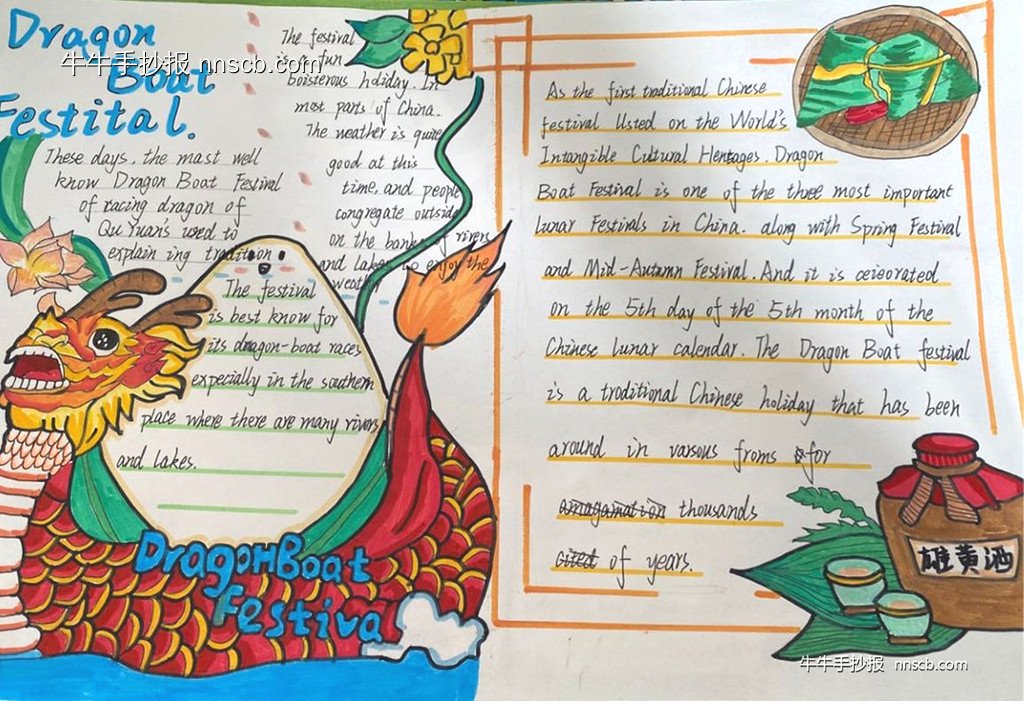 Dragon
Boat
Festital.
牛牛手抄报 nnscb.com
The festival
is a fun
boisterous holiday. In
most parts of China.
The weather is quite
good at this
time, and people
congregate outside
on the banks of rivers
and lakes to enjoy the
weather
These days, the mast well
know Dragon Boat Festival
of racing dragon of
Qu Yuan's used to
explain ing tradition
The festival
is best know for
its dragon-boat races
expecially in the southern
place where there are many rivers
and lakes.
DragonBoat
Festiva
As the first traditional Chinese
festival Usted on the World's
Intangible Cultural Hentages. Dragon
Boat Festival is one of the three most important
lunar Festivals in China. along with Spring Festival
and Mid-Autumn Festival. And it is ceieorated
on the 5th day of the 5th month of the
Chinese lunar calendar. The Dragon Boat festival
is a traditional Chinese holiday that has been
around in varsous froms for
thousands
of years.
雄黄酒
牛牛手抄报 nnscb.com